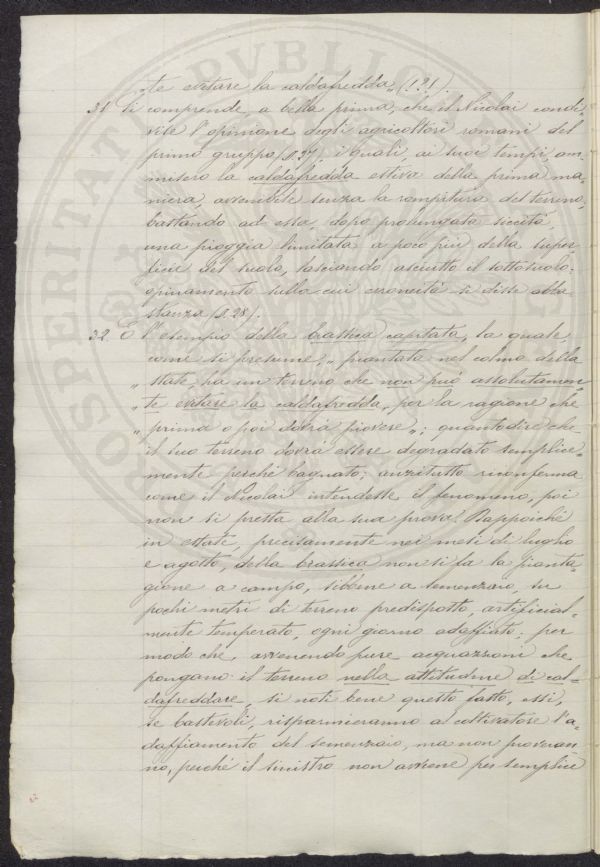 „te evitare la caldafredda„ (!?!).
31. Si comprende, a bella prima, che il Nicolai condi-
vise l'opinione degli agricoltori romani del
primo gruppo (s. 27): i quali, ai suoi tempi, am-
misero la caldafredda estiva della prima ma-
niera, avvenibile senza la rompitura del terreno,
bastando ad essa, dopo prolungata siccità,
una pioggia limitata a poco più della super-
ficie del suolo, lasciando asciutto il sottosuolo:
opinamento sulla cui erroneità si disse abba-
stanza (s. 28).
32. E l'esempio della brassica capitata, la quale,
come si presume, „piantata nel colmo della
„state, ha un terreno che non può assolutamen-
„te evitare la caldafredda, per la ragione che
„prima o poi dovrà piovere„; quantodire che
il suo terreno dovrà essere degradato semplice-
mente perché bagnato; anzitutto riconferma
come il Nicolai intendesse il fenomeno, poi
non si presta alla sua prova. Dappoiché
in estate, precisamente nei mesi di luglio
e agosto, della brassica non si fa la pianta-
gione a campo, sibbene a semenzaio, su
pochi metri di terreno predisposto, artificial-
mente temperato, ogni giorno adaffiato; per
modo che, avvenendo pure acquazzoni che
pongano il terreno nella attitudine di cal-
dafreddare, si noti bene questo fatto, essi,
se bastevoli, risparmieranno al coltivatore l'a-
daffiamento del semenzaio, ma non
no, perché il sinistro non avviene per semplice
PVBLIC
PROSPERITATI